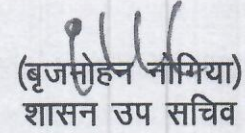 (बृजमोहन नोगिया)
शासन उप सचिव